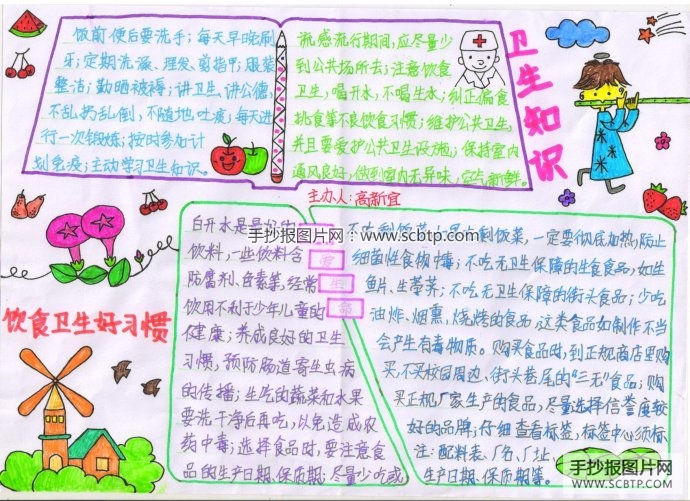 饭前便后要洗手；每天早晚刷
牙；定期洗澡、理发、剪指甲，服装
整洁；勤晒被褥；讲卫生，讲公德，
不乱扔乱倒，不随地吐痰；每天进
行一次锻炼；按时参加计
划免疫；主动学习卫生知识。
流感流行期间，应尽量少
到公共场所去；注意饮食
卫生，喝开水，不喝生水；纠正偏食
挑食等不良饮食习惯；维护公共卫生，
并且要爱护公共卫生设施；保持室内
通风良好，做到室内无异味，空气新鲜。
卫生知识
主办人：高新宜
手抄报图片网：www.scbtp.com
饮食卫生好习惯
白开水是最好的
饮料，一些饮料含
防腐剂、色素等，经常
饮用不利于少年儿童的
健康；养成良好的卫生
习惯，预防肠道寄生虫病
的传播；生吃的蔬菜和水果
要洗干净后再吃，以免造成农
药中毒；选择食品时，要注意食
品的生产日期、保质期；尽量少吃或
不吃剩饭菜，一定要彻底加热，防止
细菌性食物中毒；不吃无卫生保障的生食食品，如生
鱼片、生荸荠；不吃无卫生保障的街头食品；少吃
油炸、烟熏、烧烤的食品，这类食品如制作不当
会产生有毒物质。购买食品时，到正规商店里购
买，不买校园周边、街头巷尾的“三无”食品；购
买正规厂家生产的食品，尽量选择信誉度较
好的品牌；仔细查看标签，标签中必须标
注：配料装、厂名、厂址、
生产日期、保质期等。
手抄报图片网
SCBTP.COM